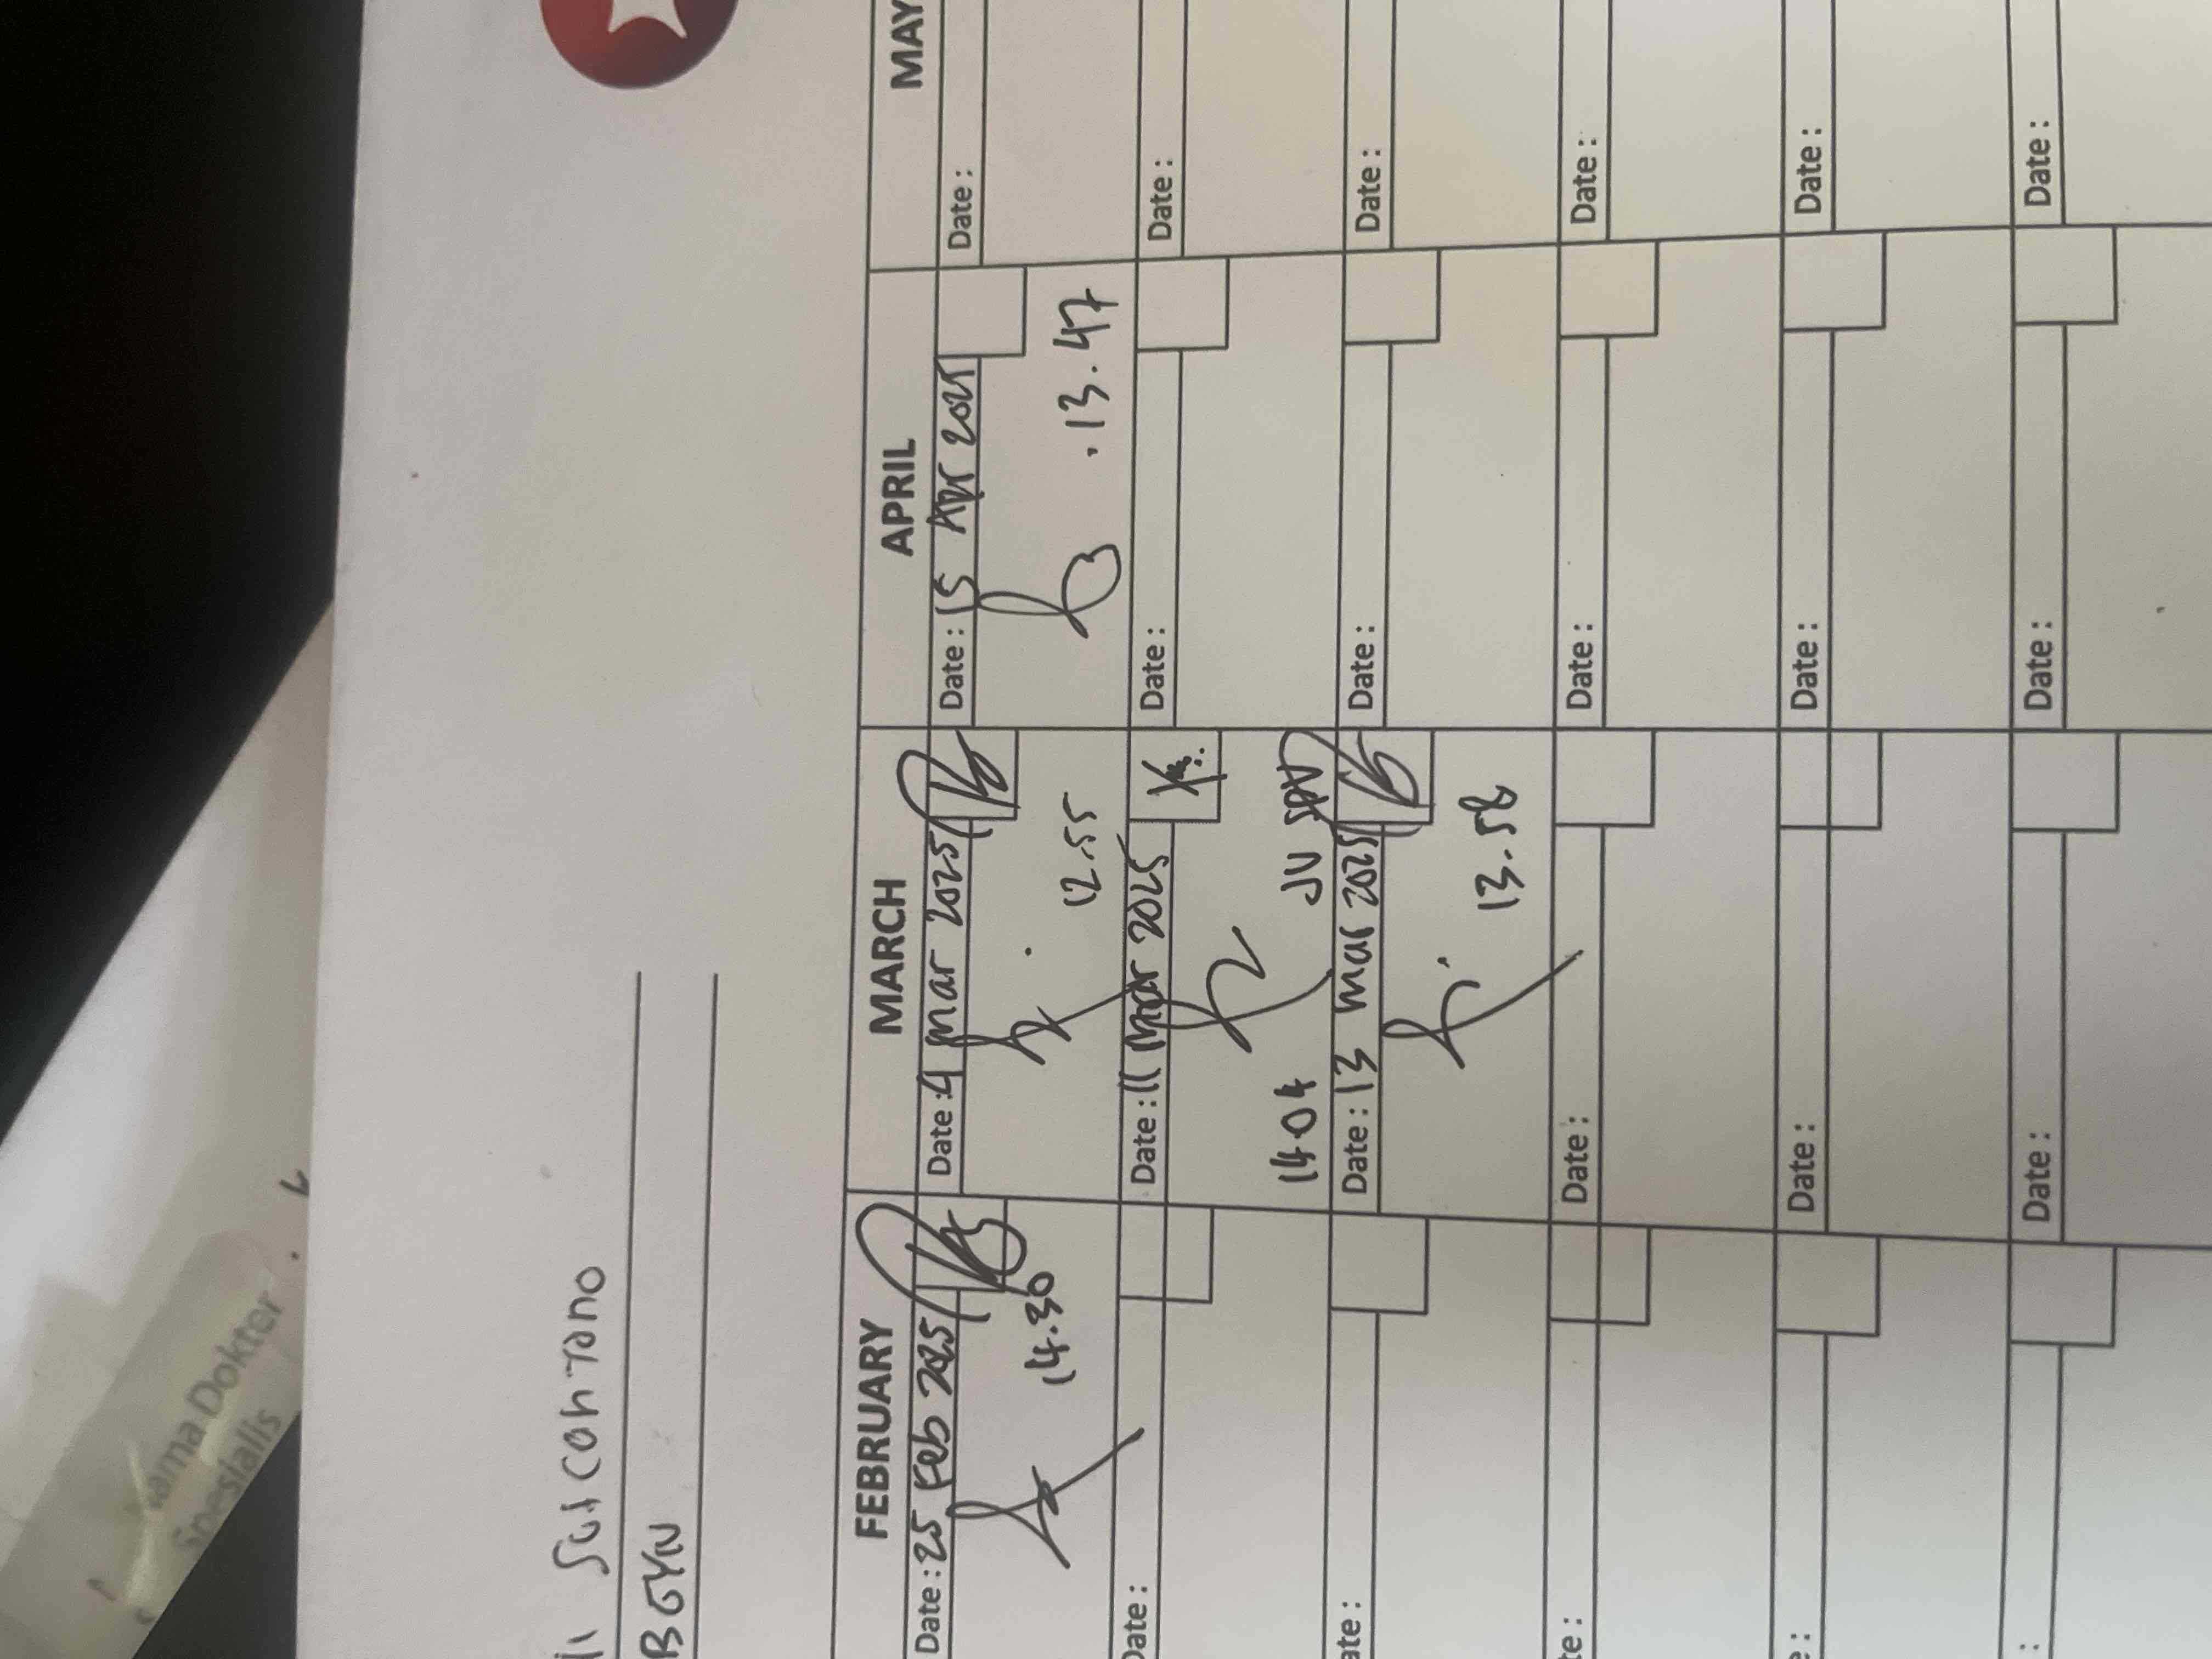 Nama Dokter
Spesialis
BGYN
FEBRUARY
MARCH
APRIL
MAY
Date : 25 Feb 2025
14.30
Date : 4 mar 2025
12.55
Date : 15 Apr 2025
13.47
Date :
Date :
Date : 11 mar 2025
1404
JU SPV
Date :
Date :
ate :
Date : 13 mar 2025
13.58
Date :
Date :
te :
Date :
Date :
Date :
Date :
Date :
Date :
Date :
Date :
Date :